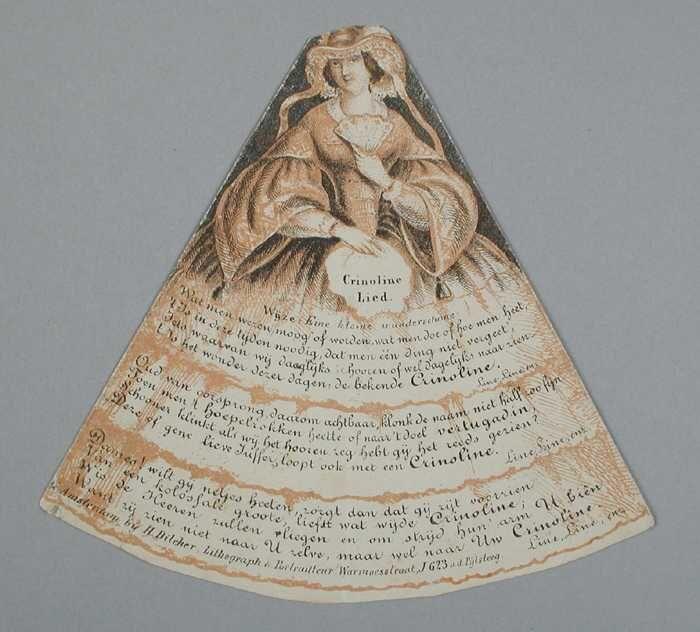 Crinoline
Lied.
Wijze: Eine kleine wunderschöne
Wat men wezen moog' of worden, wat men doe of hoe men heet,
't Is in deze tijden noodig, dat men één ding niet vergeet,
Iets waarvan wij daaglijks hooren of wel dagelijks naar zien.
't Is het wonder dezer dagen: de bekende Crinoline.
Line, Line, enz.
Oud van oorsprong, daarom achtbaar, klonk de naam niet half zoo fijn
Toen men 't hoepelrokken heette of naar 't doel vertugadin,
Schooner klinkt als wij het hooren zeg hebt gij het reeds gezien?
Deze of gene lieve Juffer, loopt ook met een Crinoline.
Line, Line, enz.
Dames! wilt gij netjes heeten, zorgt dan dat gij zijt voorzien
Van een kolossale groote, liefst wat wijde Crinoline;
Wis de Heeren zullen vliegen en om strijd hun' arm U biên
Want zij zien niet naar U zelve, maar wel naar Uw Crinoline
Line, Line, enz.
te Amsterdam, bij H. Pilcher, Lithograph & Portraitteur Warmoesstraat, J 623 o.d. Pijlsteeg.